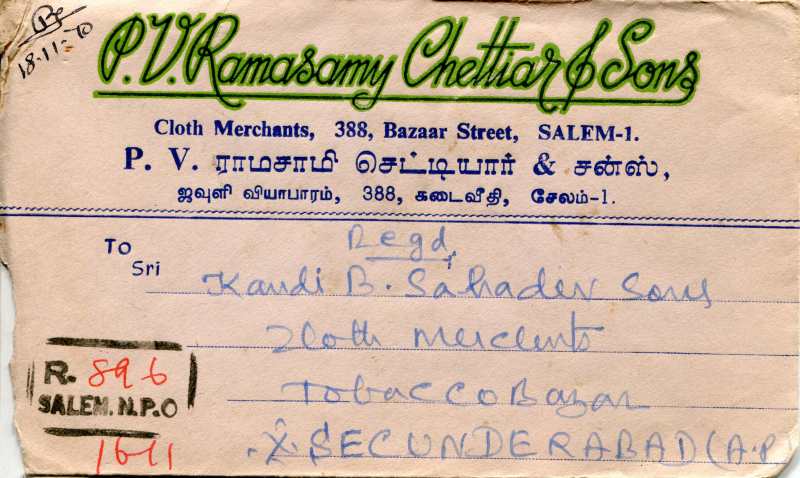 18-11-70
P.V. Ramasamy Chettiar & Sons
Cloth Merchants, 388, Bazaar Street, SALEM-1.
P. V. ராமசாமி செட்டியார் & சன்ஸ்,
ஜவுளி வியாபாரம், 388, கடைவீதி, சேலம்-1.
Regd,
To
Sri
Kandi B. Sahadev Sons
Cloth Merchents
Tobacco Bazar
SECUNDERABAD (A.P
R. 896
SALEM. N.P.O
16-11